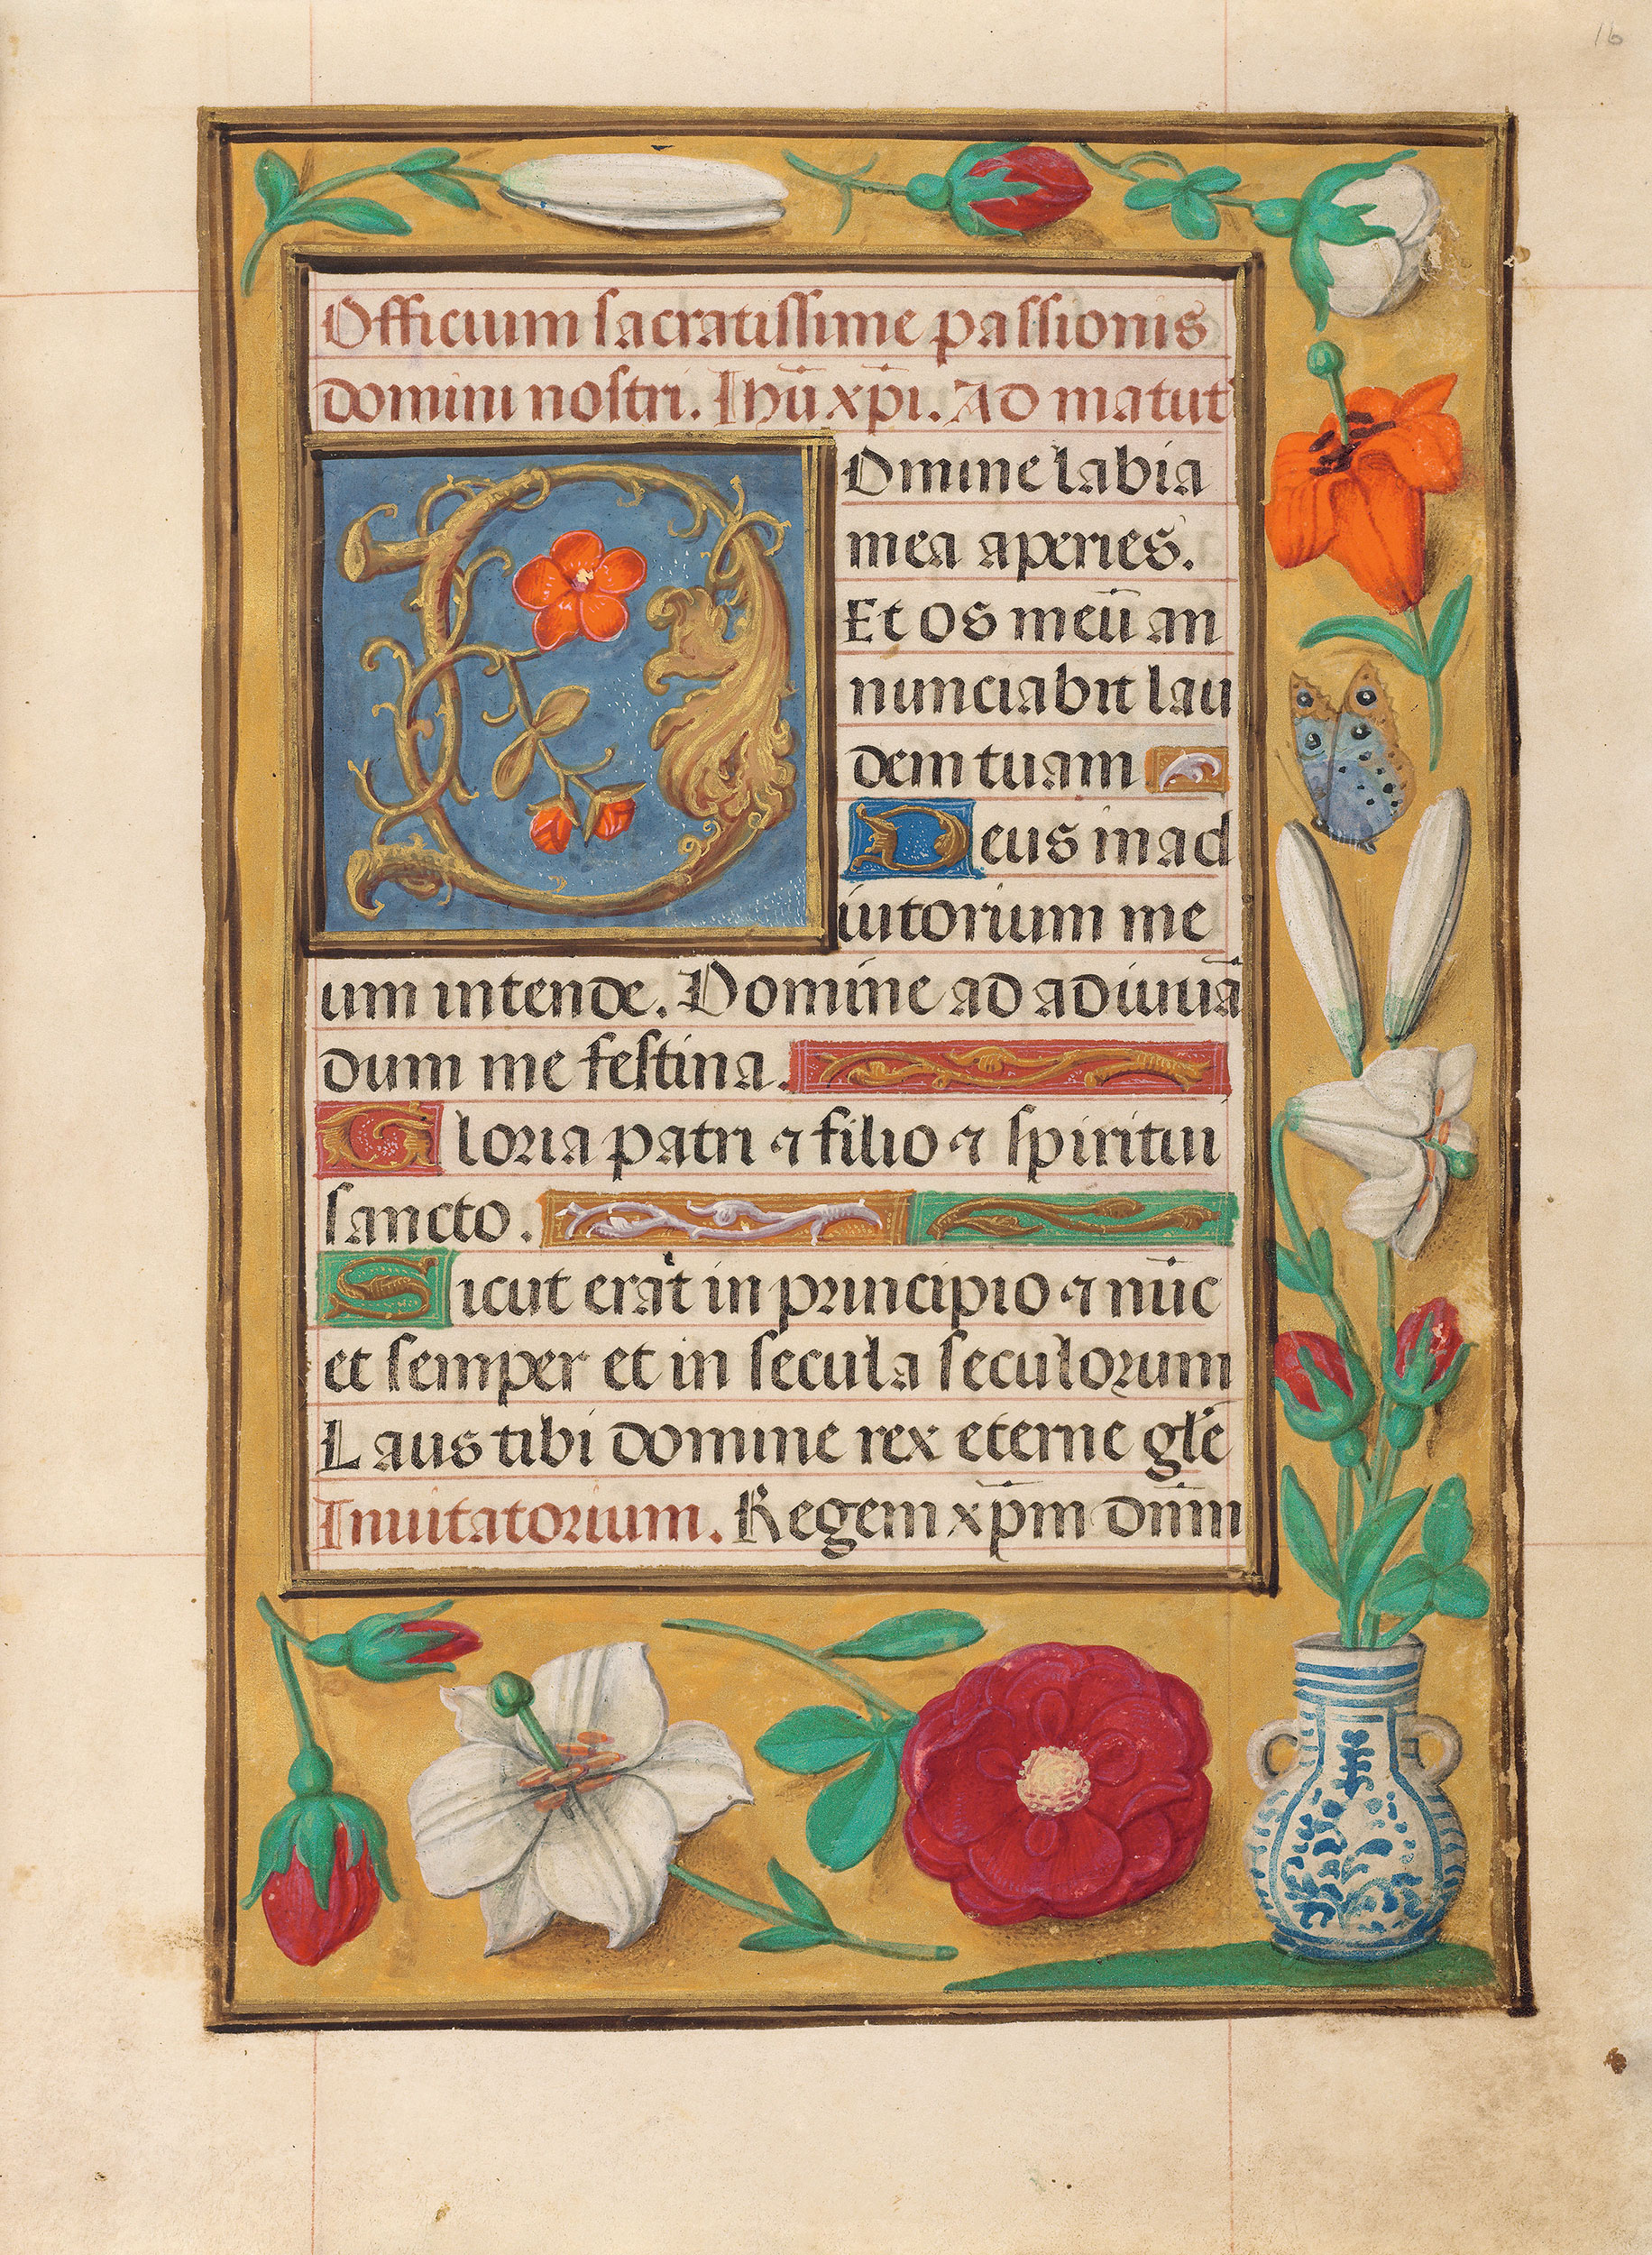 16
Officium sacratissime passionis
domini nostri. Ihũ xp̃i. Ad matut
Domine labia
mea aperies.
Et os meũ an
nunciabit lau
dem tuam
Deus in ad
iutorium me
um intende. Domine ad adiuuã
dum me festina.
Gloria patri ⁊ filio ⁊ spiritui
sancto.
Sicut erat in principio ⁊ nũc
et semper et in secula seculorum
Laus tibi domine rex eterne gl̃e
Inuitatorium. Regem xp̃m dñm